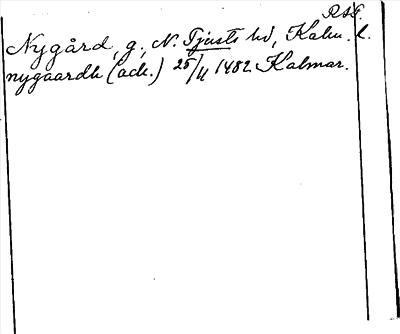 RAP.
Nygård, g., N. Tjusts hd, Kalm. l.
nygaardh (ack.) 25/11 1482 Kalmar.